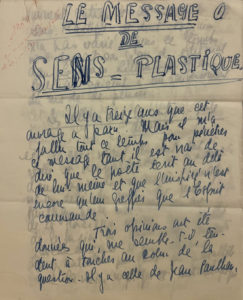 LE MESSAGE
DE
SENS = PLASTIQUE
Il y a treize ans que cet
ouvrage a paru. Mais il m'a
fallu tout ce temps pour
ce message tant il est vrai de
dire que le poète écrit au delà
de lui même et que n'est
encore qu'un greffier que l'Esprit
commande
Trois opinions ont été
données qui, me semble-t-il
à toucher au cœur de la
question. Il y a celle de Jean Paulhan,